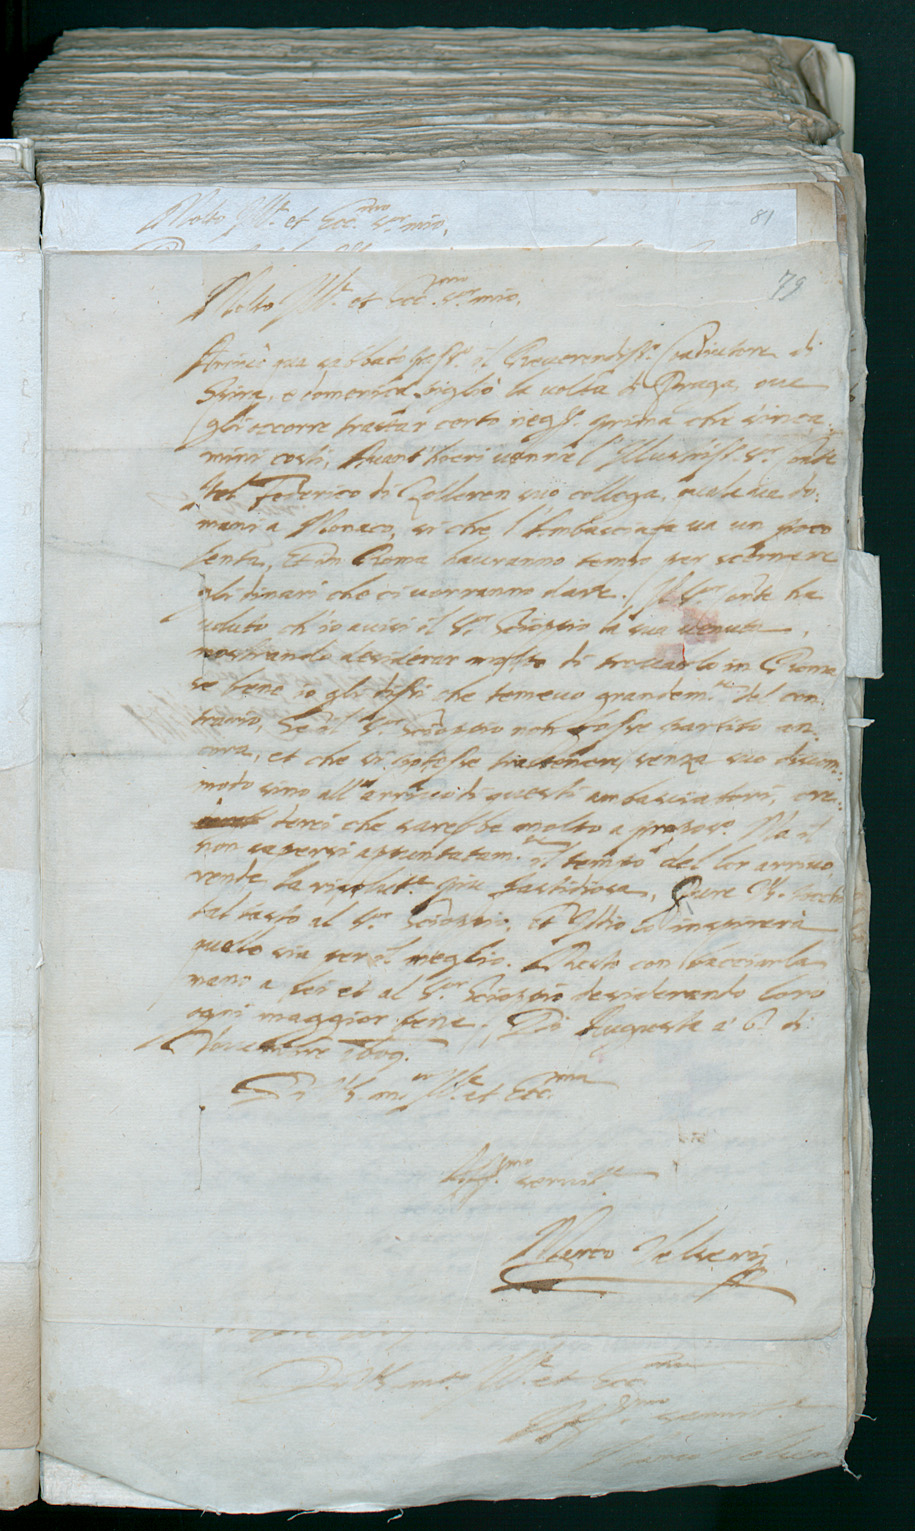 Molto Ill.e et Ecc.mo S.or mio,
81
79
Molto Ill.e et Ecc.mo S.or mio.
Arrivò qua sabbato pass.o il Reverendiss.o Coadiutore di
e domenica pigliò la volta di Praga, ove
gli occorre trattar certo neg.o prima che s'inca:
mini costì, Avant'hieri venne l'Illustriss.o S.r Conte
Federico di Zolleren suo collega,
mani a Monaco, si che l'Ambasciata va un poco
lenta, et in Roma hauranno tempo per
gli dinari che ci vorranno dare. Il S.or Conte ha
voluto ch'io avisi il S.r Scioppio la sua venuta,
mostrando desiderar molto di trovarlo in Roma
se bene io gli dissi che temevo grandem.te del con:
trario, Se il S.or Scioppio non fosse partito an:
cora, et che si potesse trattener senza suo discom:
modo sino all'arrivo di questi ambasciatori, cre:
derei che sarebbe molto a propos.o Ma il
non sapersi appuntatam.te il tempo del lor arrivo,
rende la più fastidiosa, Pure V.S.
tal al S.r Scioppio, et Iddio lo inspirerà
quello sia per il meglio. Resto con bacciar la
mano a lei et al S.or Scioppio desiderando loro
ogni maggior bene, Di Augusta a' 6 di
Novembre 1609.
Di V.S. m. Ill.e et Ecc.ma
Aff.mo servit.e
Marco Velseri
Di V.S. m.to Ill.e et Ecc.ma
Aff.mo servit.e
Marco Velseri